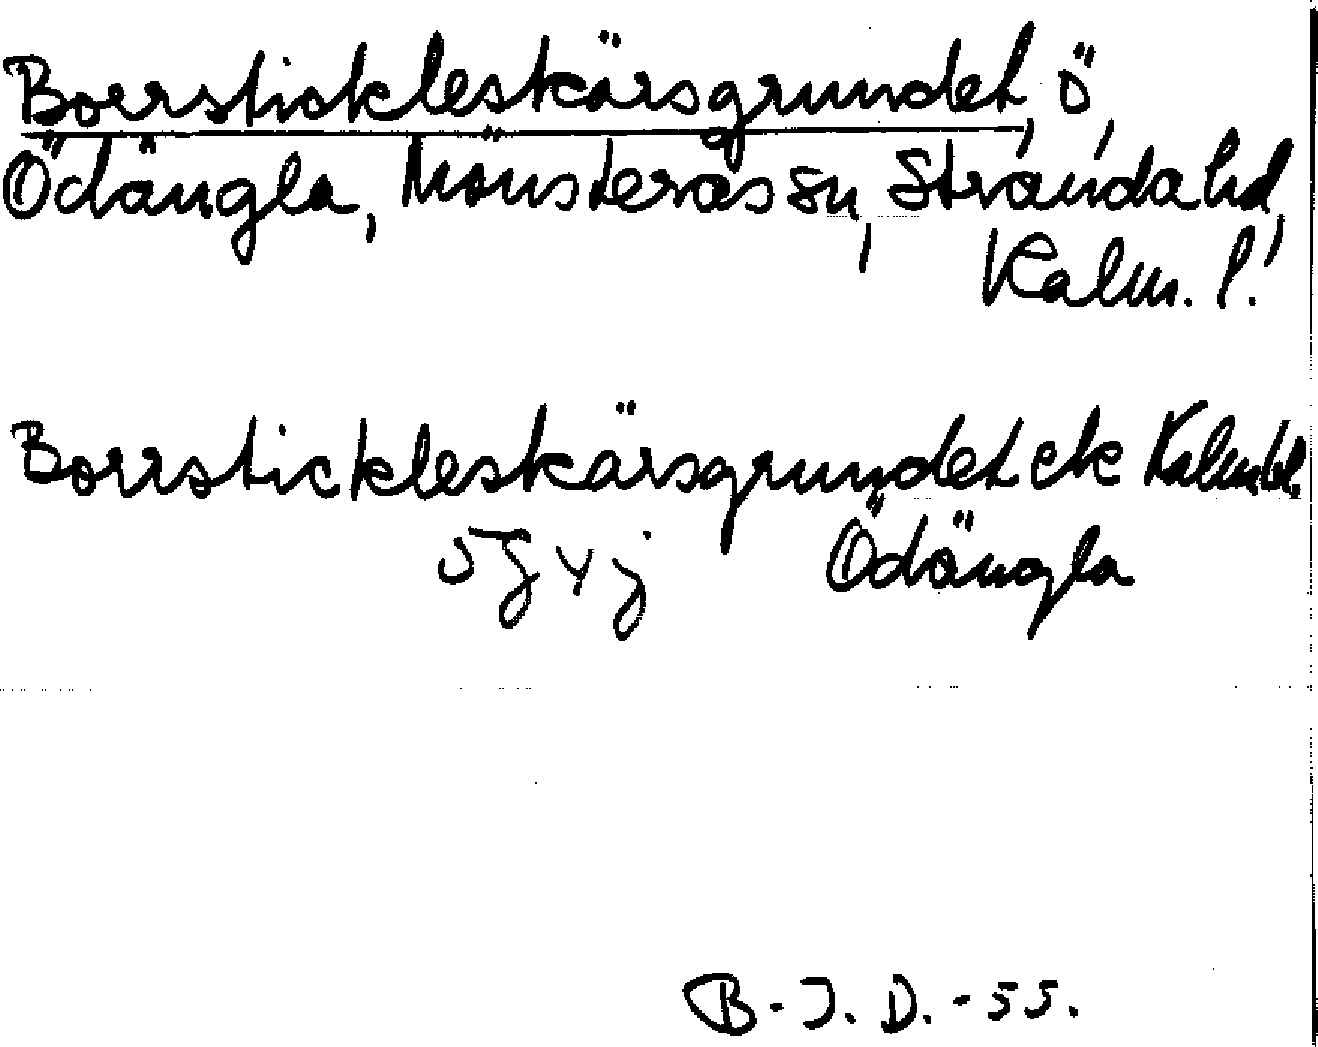 Borrstickleskärsgrundet, ö,
Ödängla, Mönsterås sn, Stranda hd,
Kalm. l.
Borrstickleskärsgrundet ek Kalmbl.
5g yj Ödängla
B-J. D. -55.